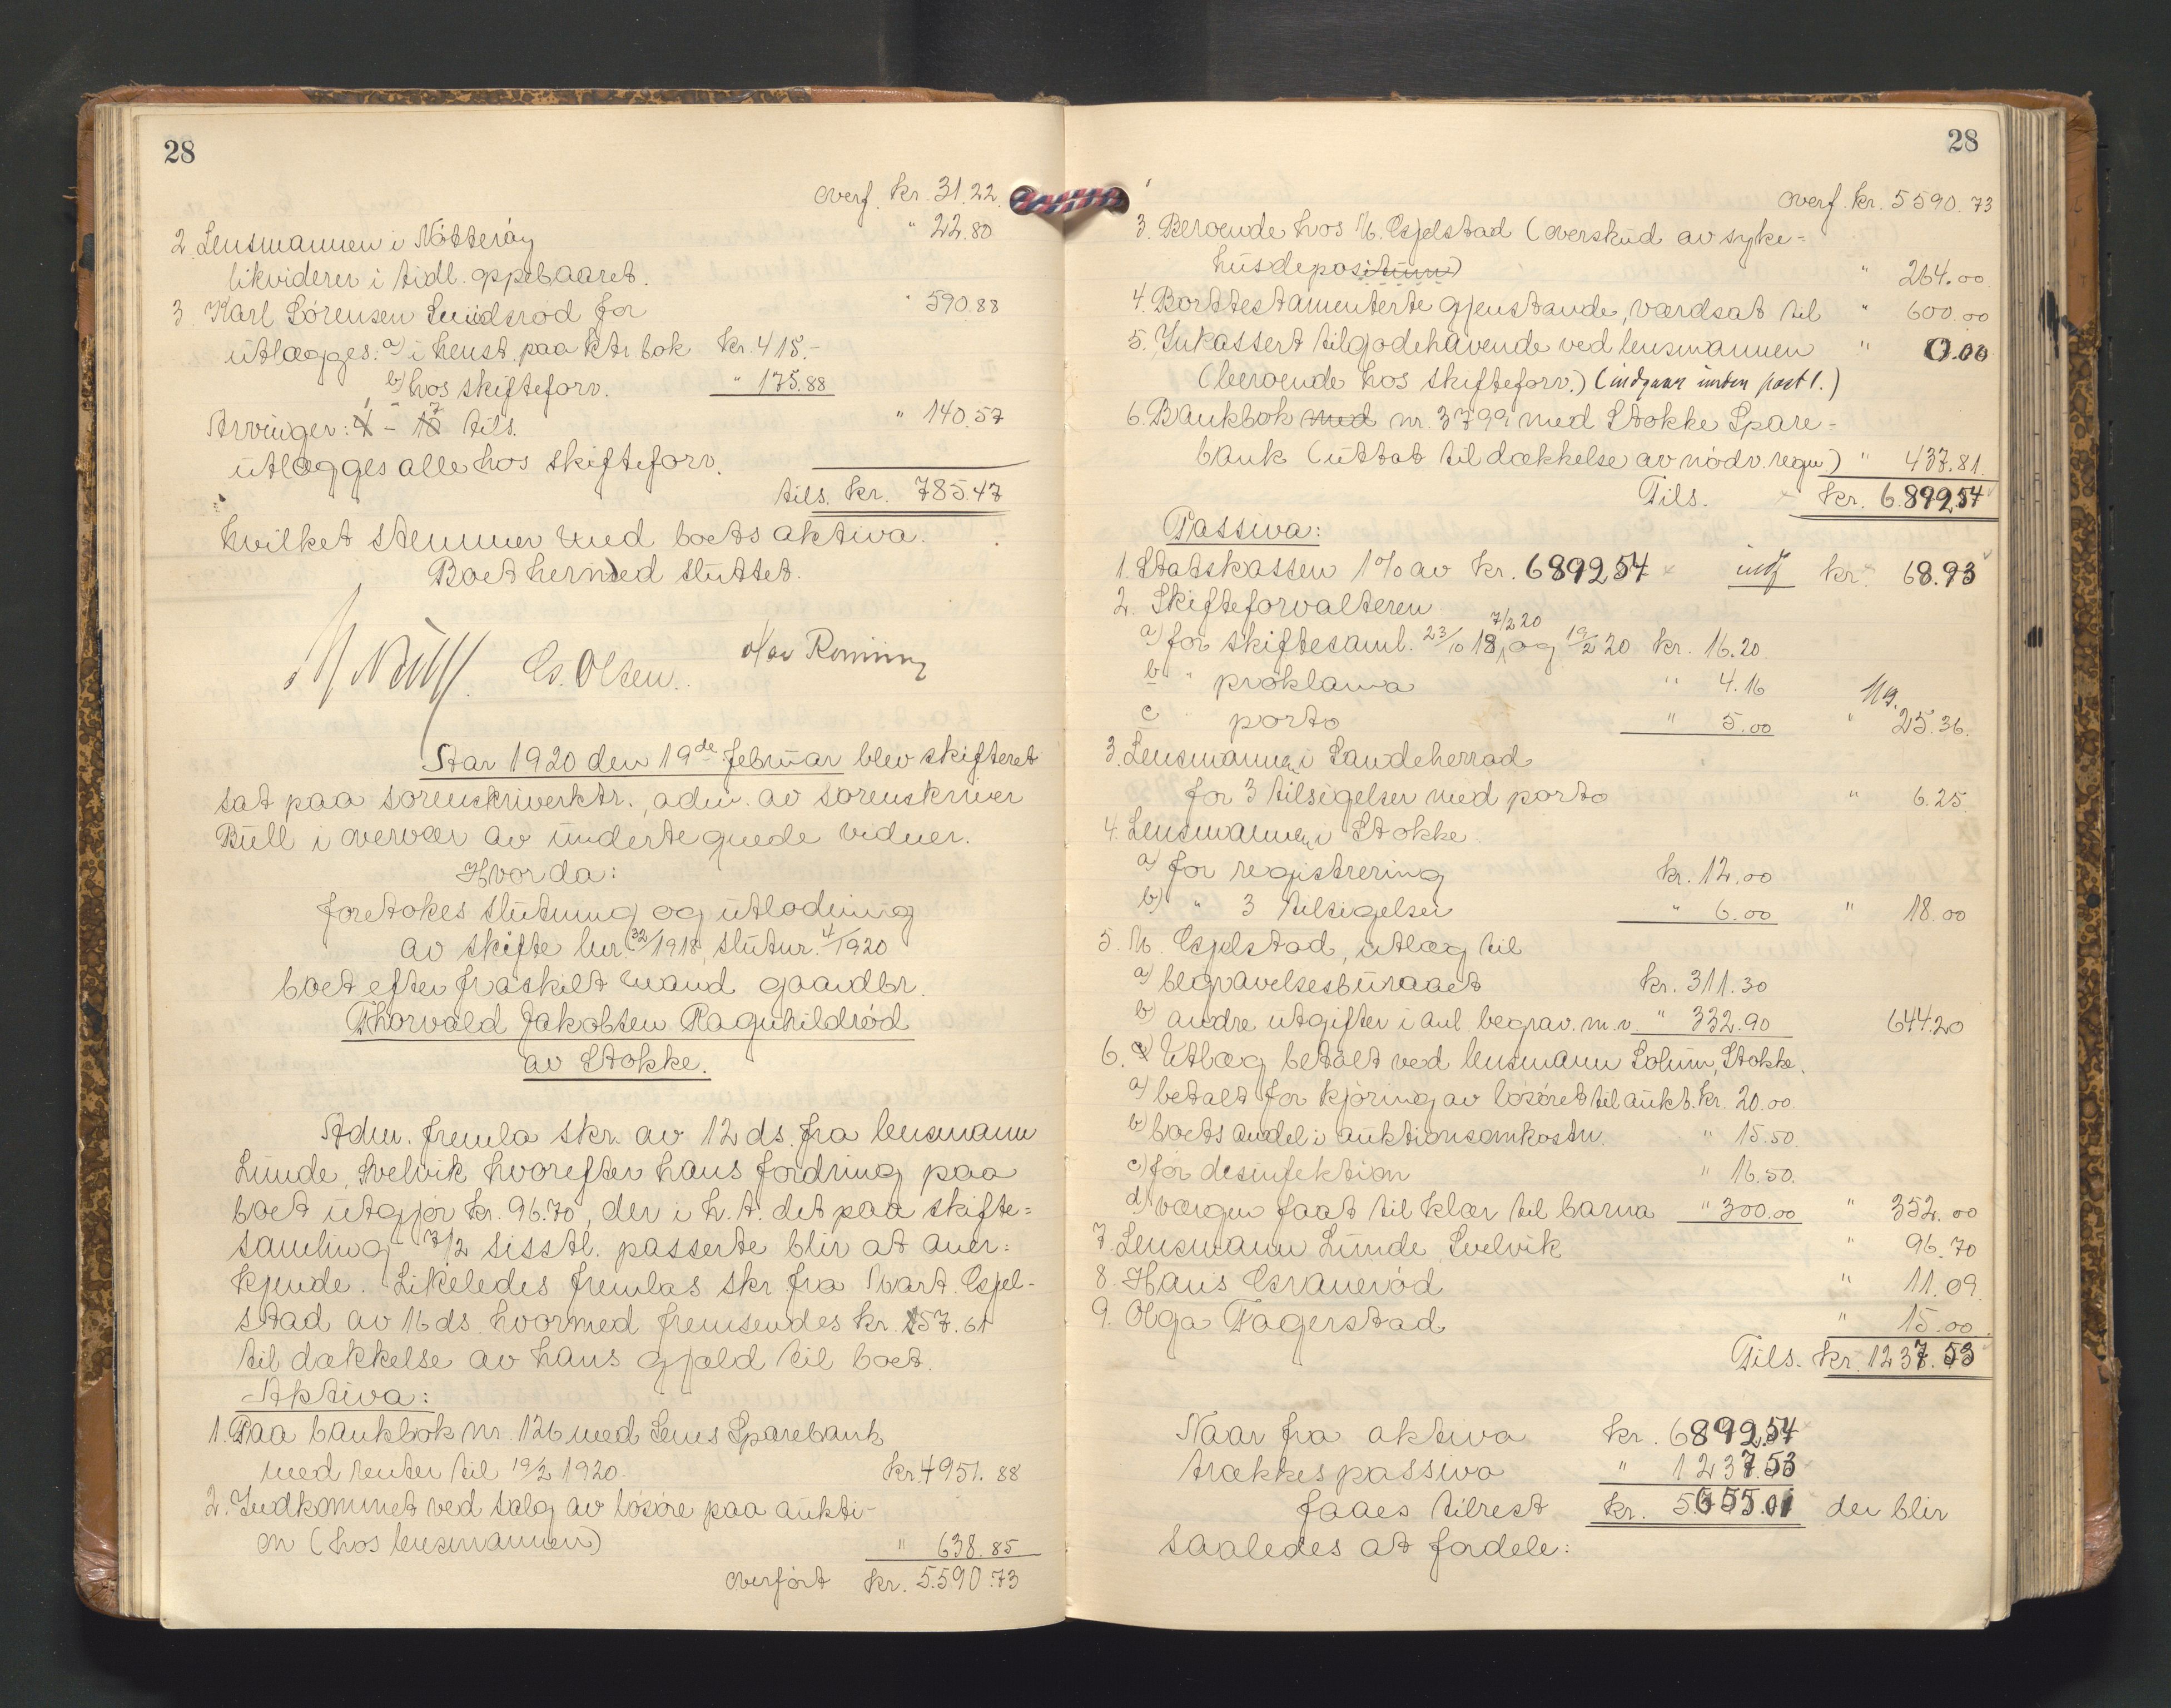 28
overf. kr. 31.22
2. Lensmannen i Nötteröy " 22.80
likviderer i tidl. oppebaaret.
3. Karl Sörensen Sundsröd for " 590.88
utlægges: a) i henst. paa ktr. bok kr. 415.-
b) hos skifteforv. " 175.88
Arvinger: 1 - 7 tils. " 140.57
utlægges alle hos skifteforv.
tils. kr. 785.47
hvilket stemmer med boets aktiva.
Boet hermed sluttet.
Bull Cs. Olsen. Olav Rønning
Aar 1920 den 19de februar blev skifteret
sat paa sorenskriverktr., adm. av sorenskriver
Bull i overvær av undertegnede vidner.
Hvorda:
foretokes slutning og utlodning
av skifte lnr. 32/1918, slutnr. 4/1920
boet efter fraskilt mand gaardbr.
Thorvald Jakobsen Ragnhildröd
av Stokke.
Adm. fremla skr. av 12 ds. fra lensmann
Lunde, Svelvik hvorefter hans fordring paa
boet utgjör kr. 96.70, der i h.t. det paa skifte=
samling 7/2 sisstl. passerte blir at aner=
kjende. Likeledes fremlas skr. fra Mart. Espel-
stad av 16 ds. hvormed fremsendes kr. 157.61
til dækkelse av hans gjæld til boet.
Aktiva:
1. Paa bankbok nr. 126 med Sems Sparebank
med renter til 19/2 1920. kr. 4951.88
2. Indkommet ved salg av lösöre paa aukti-
on (hos lensmannen) " 638.85
overfört kr. 5.590.73
28
overf. kr. 5590.73
3. Beroende hos M. Espelstad (overskud av syke=
husdepositum) " 264.00
4. Borttestamenterte gjenstande, værdsat til " 600.00
5. Inkassert tilgodehavende ved lensmannen " 0.00
(beroende hos skifteforv.) (indgaar under post 1.)
6. Bankbok med nr. 3799 med Stokke Spare-
bank (uttat til dækkelse av nödv. regn.) " 437.81
Tils. kr. 6.892.54
Passiva:
1. Statskassen 1% av kr. 6892.54 indf kr. 68.93
2. Skifteforvalteren
a) for skiftesaml. 23/10 18, 7/2 20 og 19/2 20 kr. 16.20
b " proklama " 4.16
c porto " 5.00 " 25.36
3. Lensmannen i Sandeherred
for 3 tilsigelser med porto " 6.25
4. Lensmannen i Stokke
a) for registrering kr. 12.00
b) " 3 tilsigelser " 6.00 " 18.00
5. M. Espelstad, utlæg til
a) begravelsesburaaet kr. 311.30
b) andre utgifter i anl. begrav. m.v. " 332.90 644.20
6. Utlæg betalt ved lensmann Solum, Stokke.
a) betalt for kjöring av lösöret til aukt. kr. 20.00
b) boets andel i auktionsomkostn. " 15.50
c) for desinfektion " 16.50.
d) værgen faat til klær til barna " 300.00 " 352.00
7. Lensmann Lunde, Svelvik " 96.70
8. Hans Evraneröd " 11.09
9. Olga Fagerstad " 15.00
Tils. kr. 1237.53
Naar fra aktiva kr. 6892.54
trækkes passiva " 1237.53
faaes tilrest kr. 5655.01 der blir
saaledes at fordele: